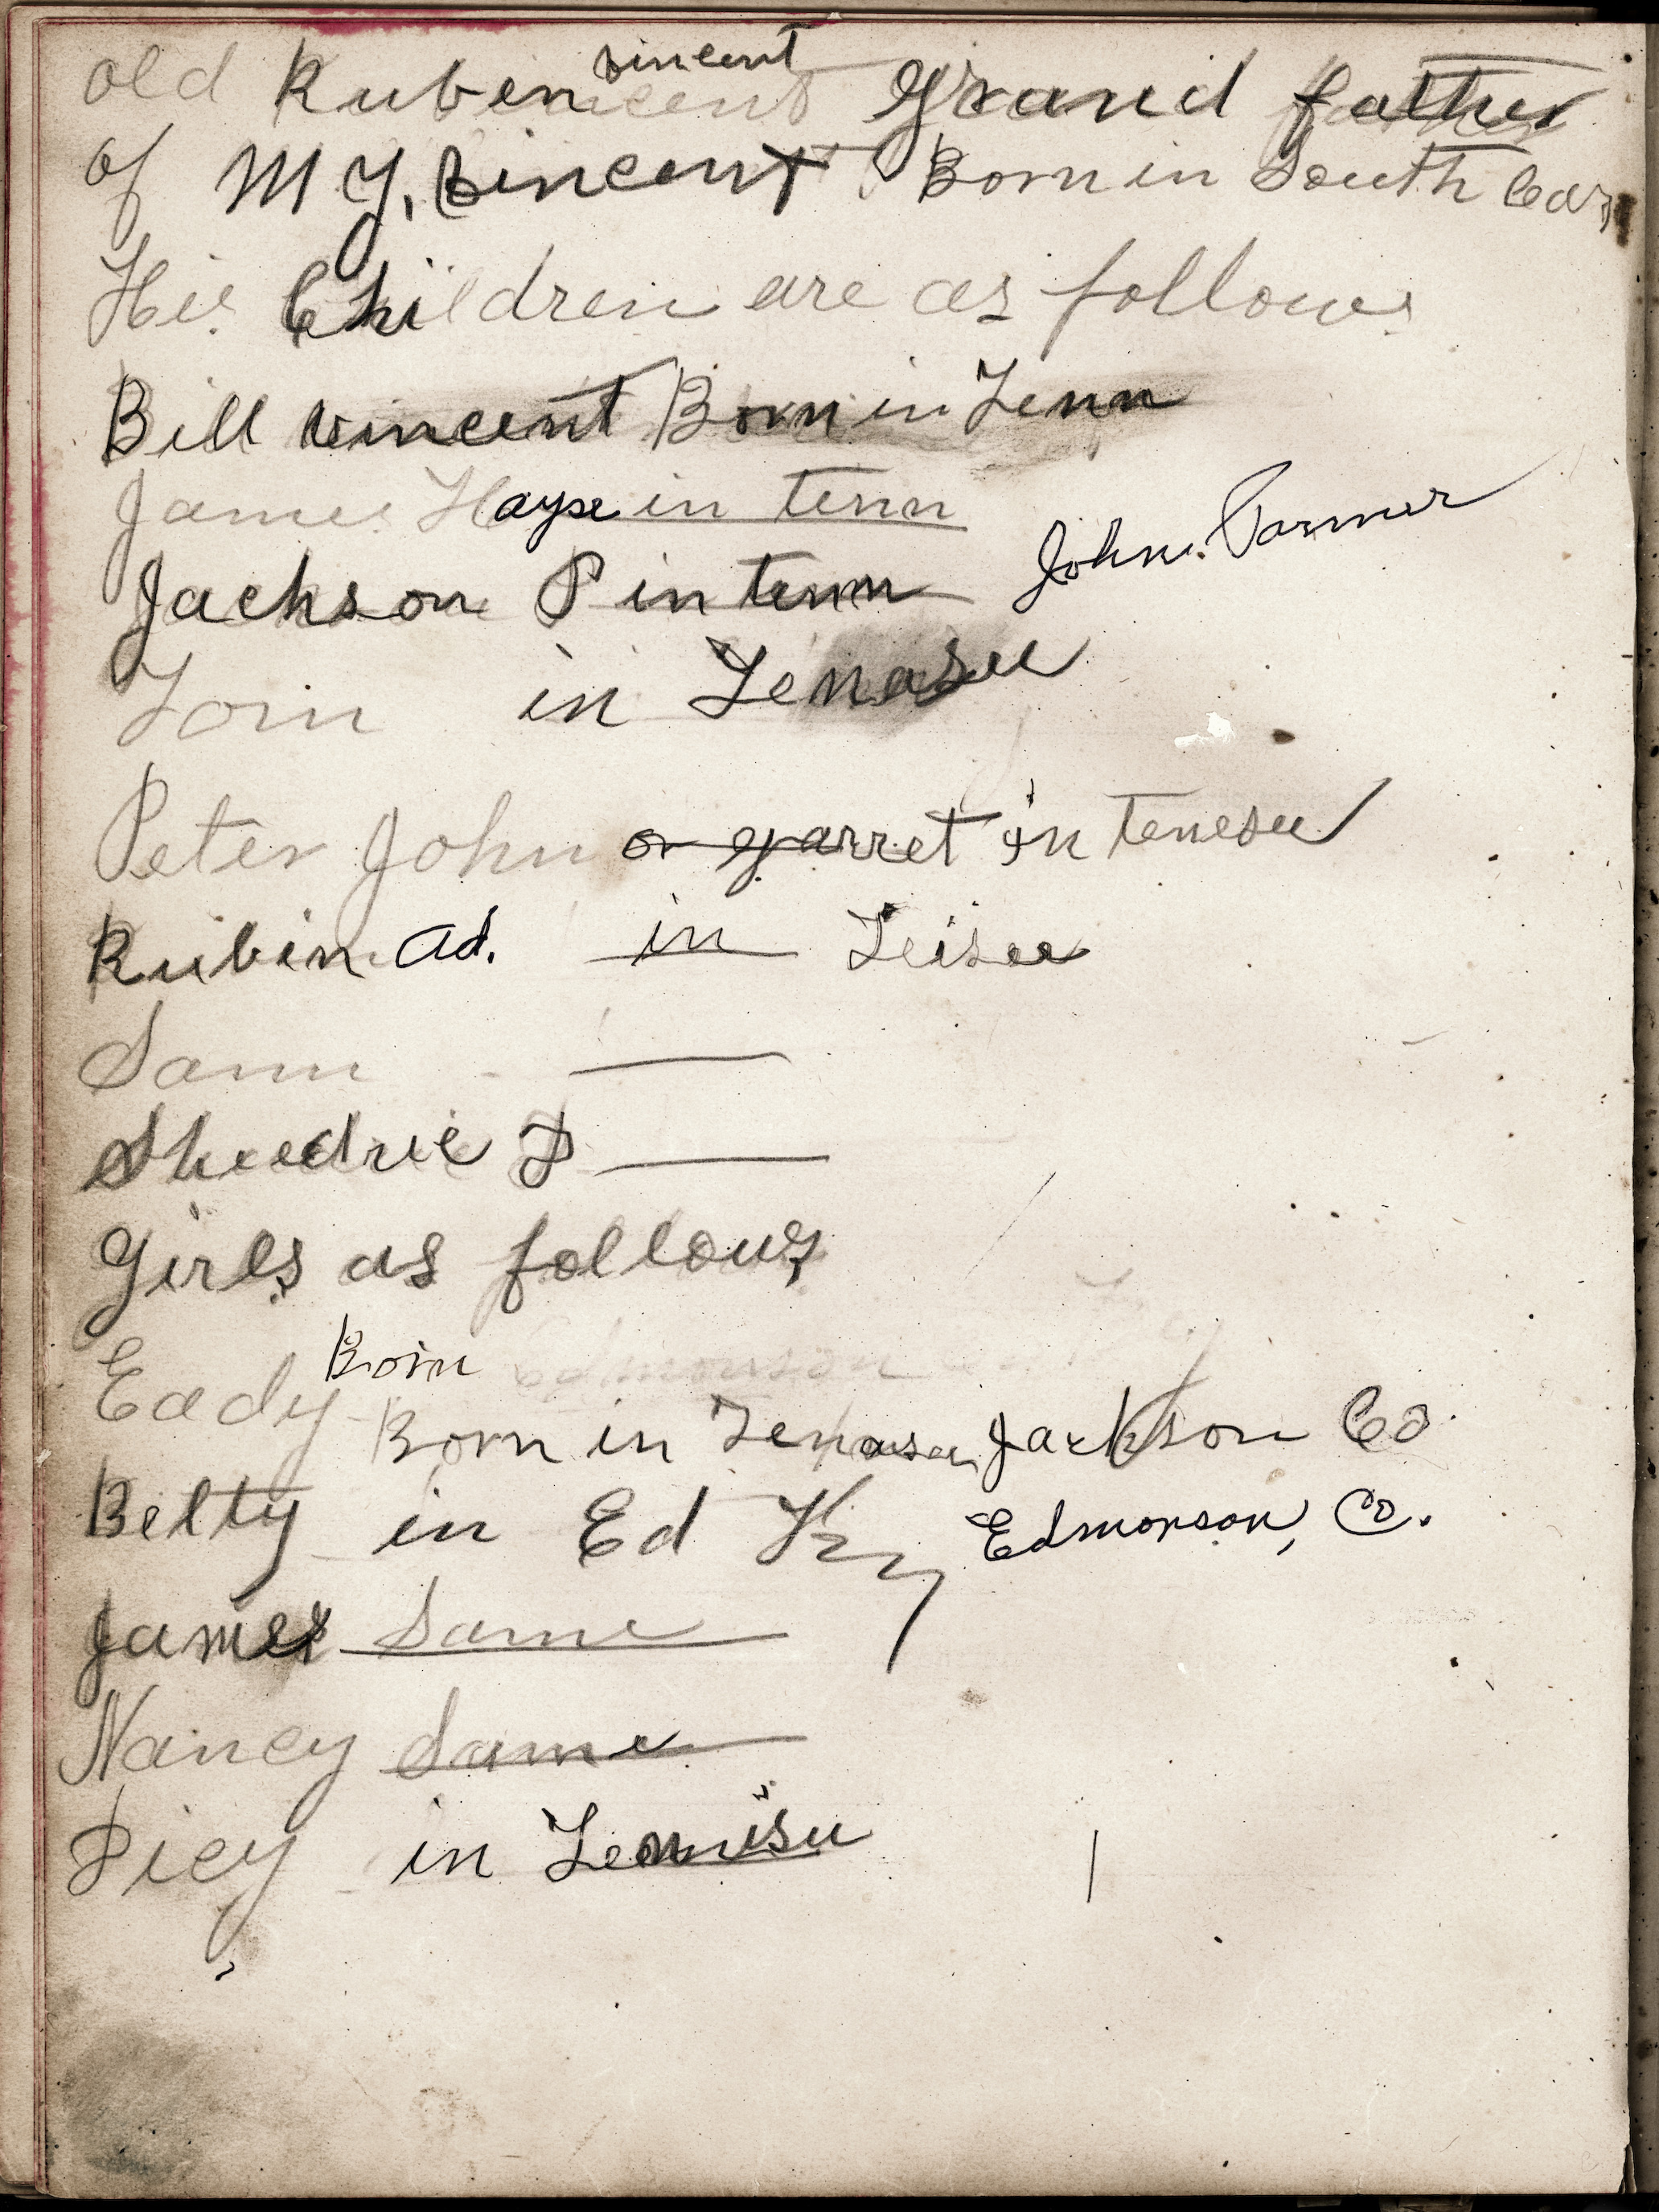 old Ruben vincent Grand father
of M Y. Vincent Born in South Car,
His Children are as follows
Bill vincent Born in Tenn
James Hayse in tenn
Jackson P in tenn John. Parmer
Tom in Tenasee
Peter John or garret in tenesee
Rubin Ad. in
Sam
Sheedric D
Girls as follows
Eady Born Edmonson
Born in Tenasee Jackson Co
Betty in Ed Ky Edmonson, Co.
James Same
Nancy Same
Dicy in